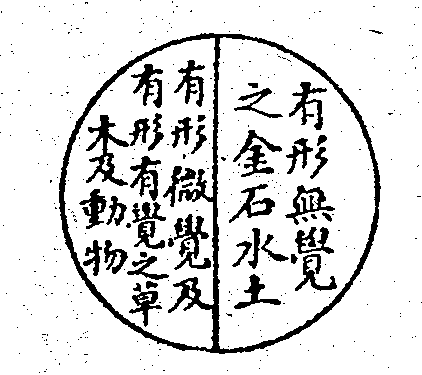 有形無覺
之金石水土
有形微覺及
有形有覺之草
木及動物